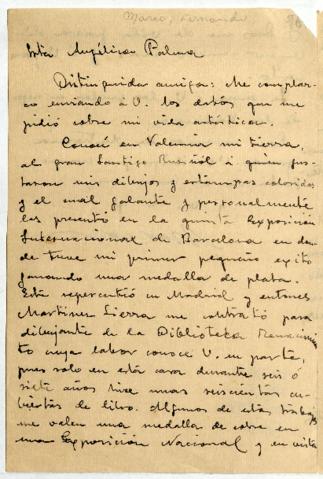 Marco, Fernando
Srta Angélica Palma
Distinguida amiga: Me complaz-
co enviando á V. los datos que me
pidió sobre mi vida artística.
Conocí en Valencia mi tierra,
al gran Santiago Rusiñol á quien gus-
taron mis dibujos y estampas coloridas
y el cual galante y personalmente
les presentó en la quinta Exposición
Internacional de Barcelona en don-
de tuve mi primer pequeño exito
ganando una medalla de plata.
Esto repercutió en Madrid y entonces
Martinez Sierra me contrató para
dibujante de la Biblioteca Renacimien
to cuya labor conoce V. en parte,
pues solo en esta casa durante seis ó
siete años hice unas seiscientas cu-
biertas de libro. Algunos de estos trabajos
me valen una medalla de cobre en
una Exposición Nacional y en vista